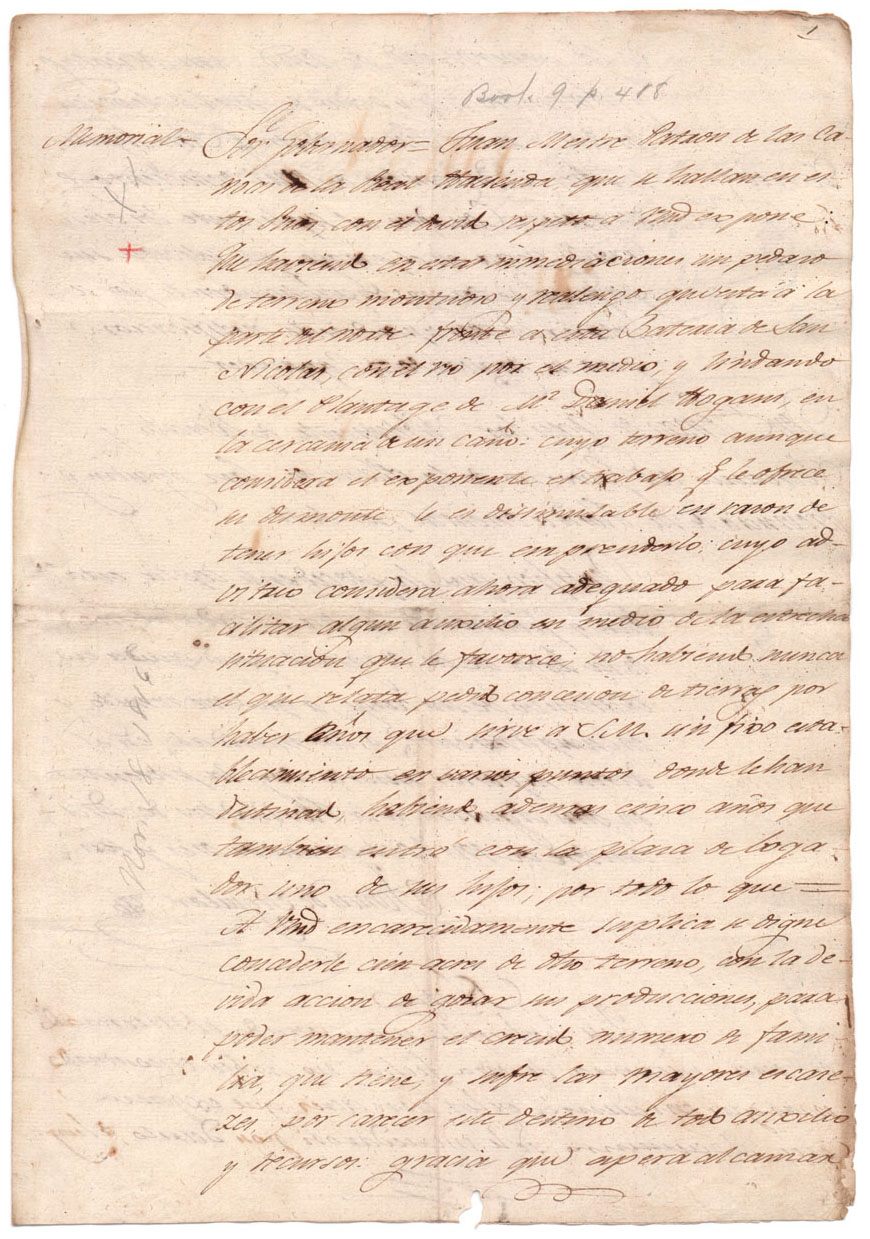 1
Book 9 p. 418
Memorial = Sor. Gobernador = Juan Mestre Patron de las Ca-
noas de la Real Hacienda, que se hallan en es-
tos Rios con el devid. respeto a Vmd expone:
Que haviend. en estas inmediaciones un pedazo
de terreno montuoso y realengo que está á la
parte del norte frente a esta Bateria de San
Nicolas, con el rio por el medio, y lindando
con el Plantage de Mr. Daniel Hogans, en
la cercania de un caño: cuyo terreno aunque
considera el exponente el trabajo q. le ofrece
su desmonte, le es disimulable en razon de
tener hijos con que emprenderlo; cuyo ad-
vitrio considera ahora adequado para fa-
cilitar algun auxilio en medio de la estrecha
situacion que le favorece; no habiend. nunca
el que relata pedid. concecion de tierras por
haber años que sirve a S.M. sin fixo esta-
blecimiento en varios puntos donde le han
destinad., habiend. ademas cinco años que
tambien entró con la plaza de boga-
dor, uno de sus hijos; por todo lo que =
A Vmd encarecidamente suplica se digne
concederle cien acres de dho terreno, con la de-
vida accion de gozar sus producciones, para
poder mantener el crecid. numero de fami-
lia, que tiene, y sufre las mayores escase-
zes, por carecer este destino de tod. auxilio
y recursos: gracia que espera alcanzar